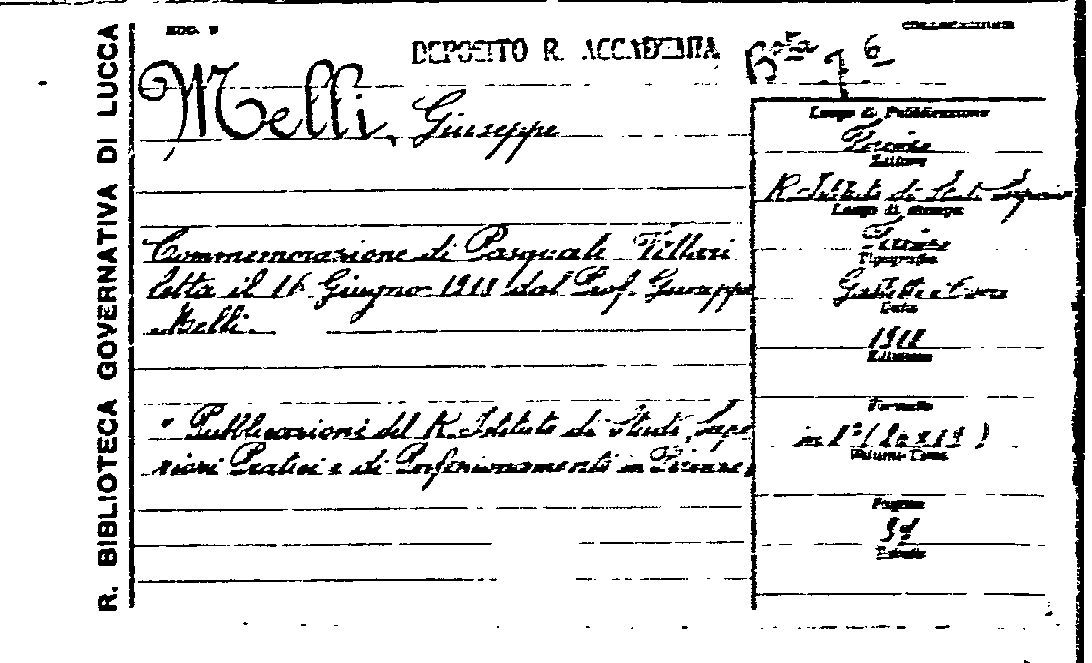 R. BIBLIOTECA GOVERNATIVA DI LUCCA
MOD. 9
COLLOCAZIONE
DEPOSITO R. ACCADEMIA
B.sta 76
Melli, Giuseppe
Commemorazione di Pasquale Villari
letta il 16 Giugno 1918 dal Prof. Giuseppe
Melli.
" Pubblicazioni del R. Istituto di Studi Supe
riori Pratici e di Perfezionamento in Firenze "
Luogo di Pubblicazione
Firenze
Editore
R. Istituto di Studi Superiori
Luogo di stampa
Firenze
Tipografia
Data
1918
Edizione
Formato
in 8° (
Volumi-Tomi
Pagine